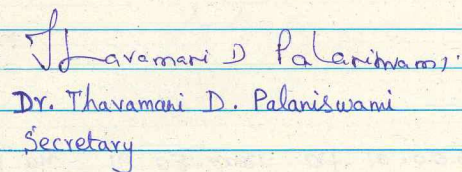 Thavamani D Palaniswami
Dr. Thavamani D. Palaniswami
Secretary